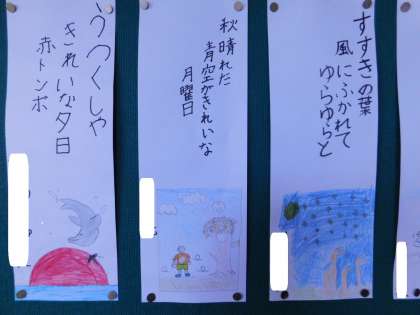 すすきの葉
風にふかれて
ゆらゆらと
秋晴れた
青空がきれいな
月曜日
うつくしや
きれいな夕日
赤トンボ